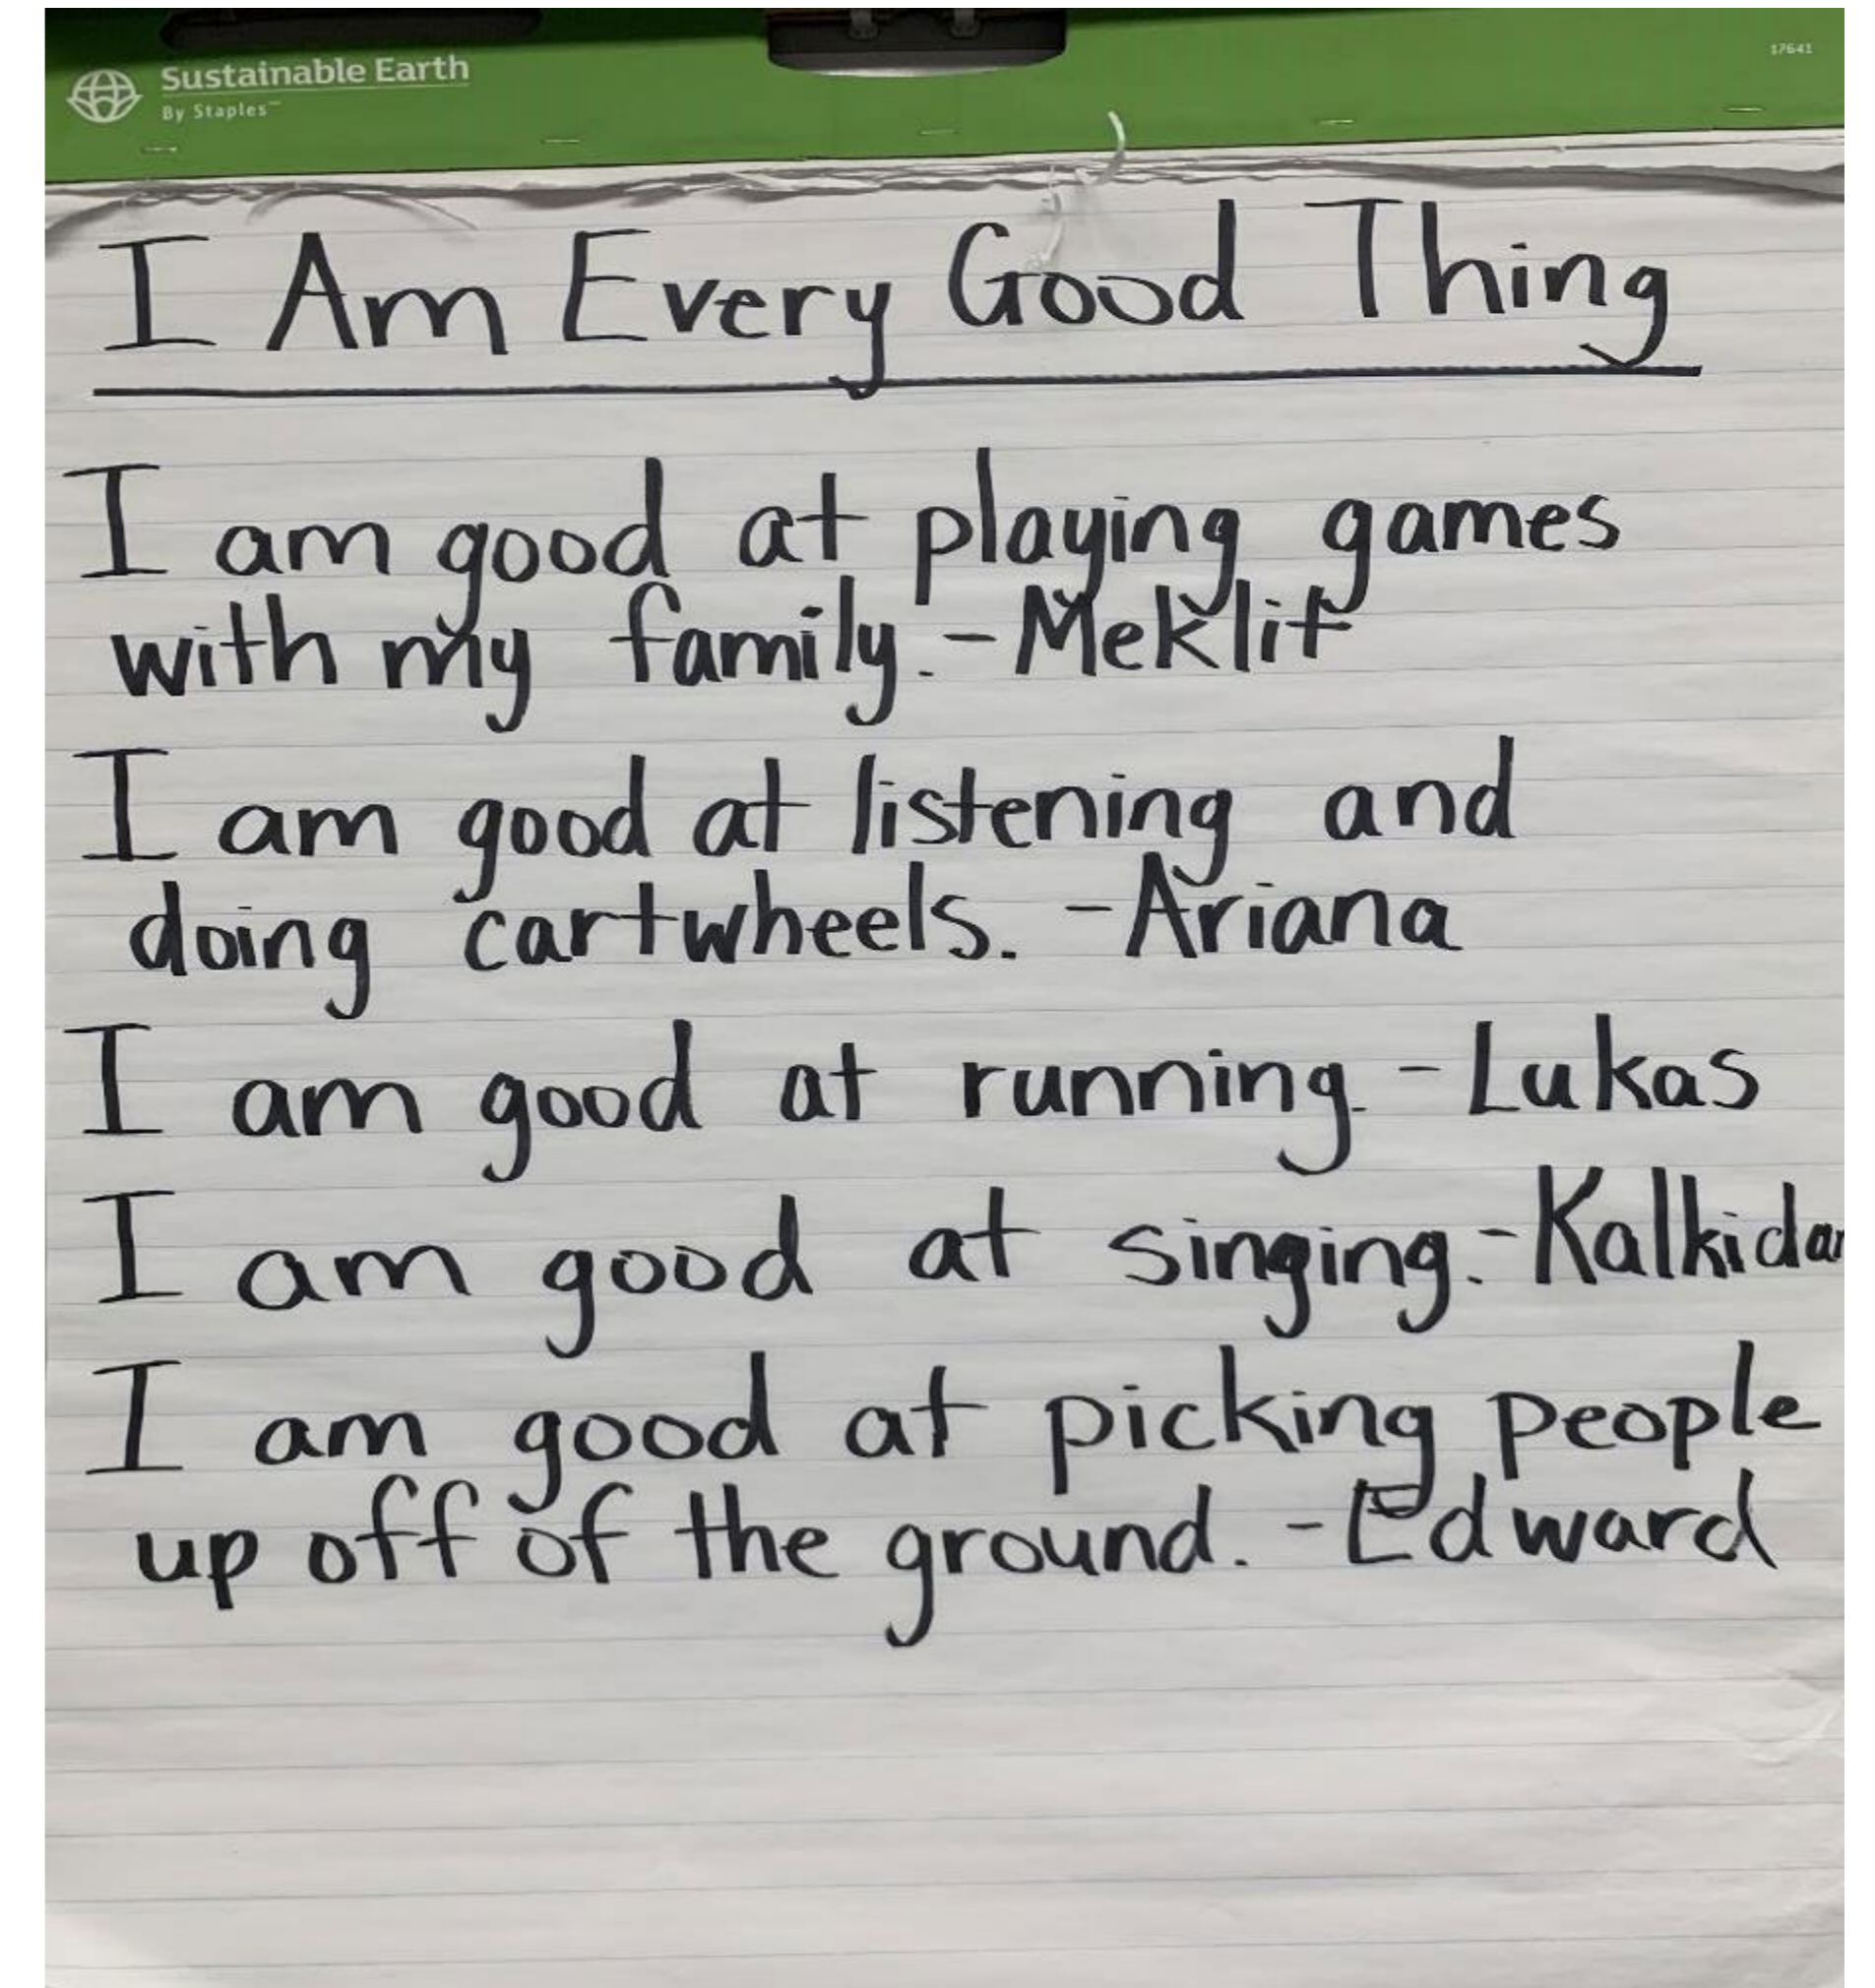 Sustainable Earth
By Staples™
17641
I Am Every Good Thing
I am good at playing games
with my family. - Meklit
I am good at listening and
doing cartwheels. - Ariana
I am good at running. - Lukas
I am good at singing. - Kalkidan
I am good at picking people
up off of the ground. - Edward